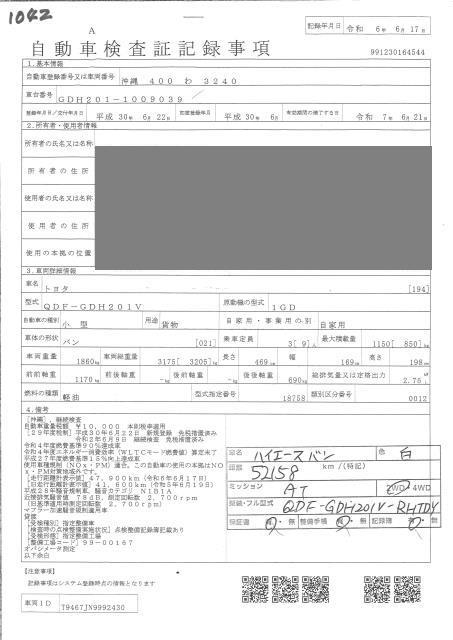 1042
A
記録年月日 令和 6年 6月17日
自動車検査証記録事項
991230164544
1.基本情報
自動車登録番号又は車両番号 沖縄 400 わ 3240
車台番号 GDH201-1009039
登録年月日/交付年月日 平成30年 6月22日 初度登録年月 平成30年 6月 有効期間の満了する日 令和 7年 6月21日
2.所有者・使用者情報
所有者の氏名又は名称
所有者の住所
使用者の氏名又は名称
使用者の住所
使用の本拠の位置
3.車両詳細情報
車名 トヨタ [194]
型式 QDF-GDH201V 原動機の型式 1GD
自動車の種別 小型 用途 貨物 自家用・事業用の別 自家用
車体の形状 バン [021] 乗車定員 3[ 9]人 最大積載量 1150[ 850]kg
車両重量 1860kg 車両総重量 3175[ 3205]kg 長さ 469cm 幅 169cm 高さ 198cm
前前軸重 1170kg 前後軸重 -kg 後前軸重 -kg 後後軸重 690kg 総排気量又は定格出力 2.75L
燃料の種類 軽油 型式指定番号 18758 類別区分番号 0012
4.備考
[沖縄],継続検査
自動車重量税額 ¥10,000 本則税率適用
[29年度税制]平成30年6月22日 新規登録 免税措置済
令和2年6月9日 継続検査 免税措置済
令和4年度燃費基準90%達成車
令和4年度エネルギー消費効率(WLTCモード燃費値)算定未了
平成27年度燃費基準15%向上達成車
使用車種規制(NOx・PM)適合,この自動車の使用の本拠はNOx・PM対策地域外です。
[走行距離計表示値]47,900km(令和6年6月17日)
[旧走行距離計表示値]41,600km(令和5年6月19日)
平成28年騒音規制車,騒音カテゴリ N1B1A
近接排気騒音値 78dB,測定回転数 2,700rpm
[旧基準適用時測定回転数 2,700rpm]
マフラー加速騒音規制適用車
貸渡
[受検種別]指定整備車
[検査時の点検整備実施状況]点検整備記録簿記載あり
[受検形態]指定整備工場
[整備工場コード]99-00167
オパシメータ測定
以下余白
車名 ハイエースバン 色 白
距離 52158 km/(特記)
ミッション AT 2WD・4WD
型式・フル型式 QDF-GDH201V-RHTDY
保証書 有・無 整備手帳 有・無 記録簿 有・無
[注意事項]
記録事項はシステム登録時点の情報となります
車両ID T9467JN9992430